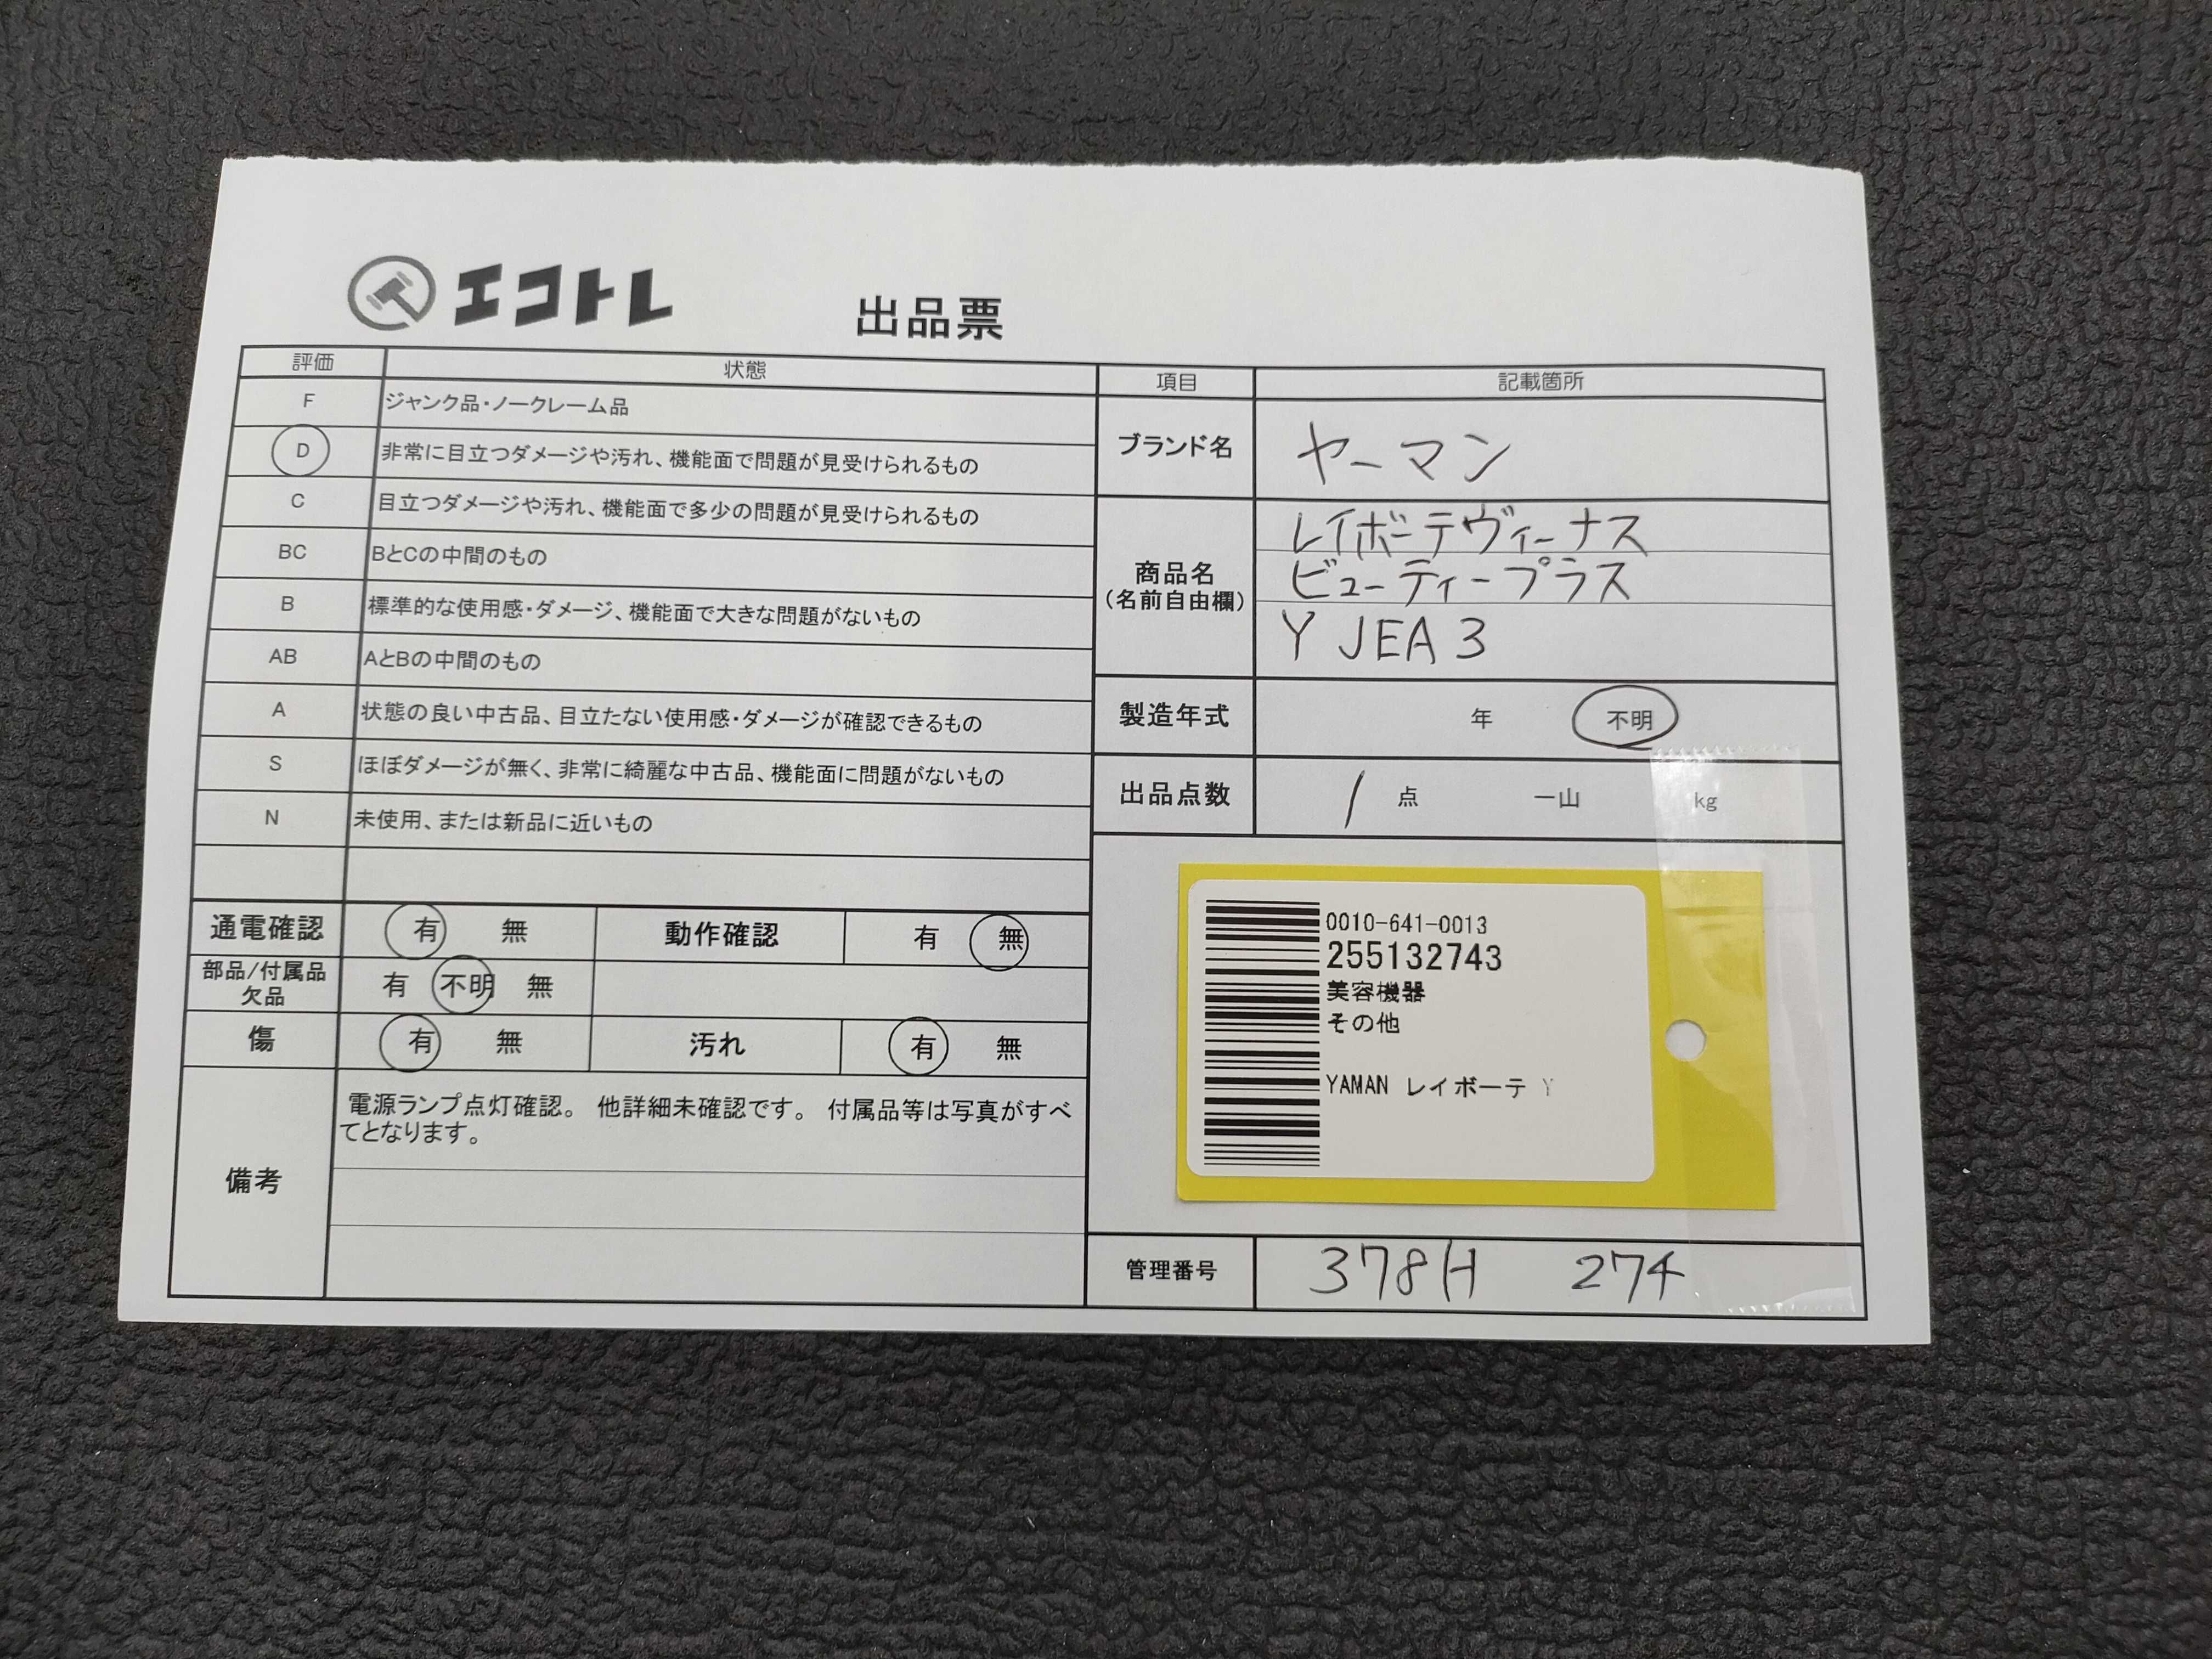 エコトレ
出品票
評価 状態
F ジャンク品・ノークレーム品
D 非常に目立つダメージや汚れ、機能面で問題が見受けられるもの
C 目立つダメージや汚れ、機能面で多少の問題が見受けられるもの
BC BとCの中間のもの
B 標準的な使用感・ダメージ、機能面で大きな問題がないもの
AB AとBの中間のもの
A 状態の良い中古品、目立たない使用感・ダメージが確認できるもの
S ほぼダメージが無く、非常に綺麗な中古品、機能面に問題がないもの
N 未使用、または新品に近いもの
通電確認 有 無 動作確認 有 無
部品/付属品
欠品 有 不明 無
傷 有 無 汚れ 有 無
備考
電源ランプ点灯確認。 他詳細未確認です。 付属品等は写真がすべ
てとなります。
項目 記載箇所
ブランド名 ヤーマン
商品名
(名前自由欄)
レイボーテヴィーナス
ビューティープラス
YJEA3
製造年式 年 不明
出品点数 1 点 一山 kg
0010-641-0013
255132743
美容機器
その他
YAMAN レイボーテ Y
管理番号 378H 274